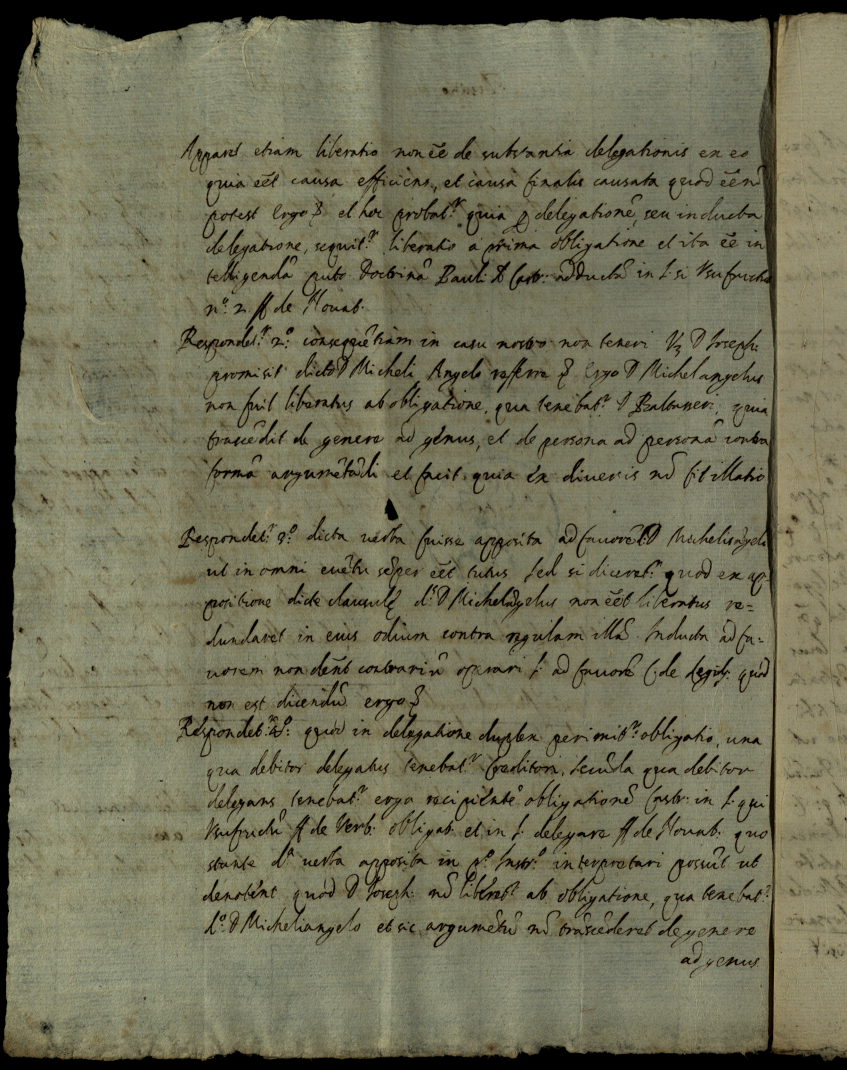 Apparet etiam liberatio non eē de substantia delegationis ex eo
quia eēt causa efficiens, et causa finalis causata quod eē nō
potest ergo & et hoc probat.r quia p delegationē, seu inducta
delegatione, sequit.r liberatio a prima obligatione et ita eē in
telligendā puto Doctrinā Pauli d Castr: adductā in l: si Usufructu
n.o 2 ff de Nouat.
Respondet.r 2.o consequētiam in casu nostro non teneri D Joseph:
promisit dicto D Micheli Angelo referre & Ergo D Michelangelus
non fuit liberatus ab obligatione, qua tenebat.r D Baltasseri, quia
trascēdit de genere ad genus, et de persona ad personā contra
formā argumētādi et facit quia ex diversis nō fit illatio
Respondet.r 3.o dicta verba fuisse apposita ad fauorē D Michelisāgeli
ut in omni euētu sēper eēt tutus sed si diceret.r quod ex ap=
positione dicte clausulę d.s D Michelāgelus non eēt liberatus re=
dundaret in eius odium contra regulam illā Inducta ad fa=
uorem non debēt contrariū operari l: ad fauorē C de legib: quod
non est dicendū ergo &
Respondet.r 4.o: quod in delegatione duplex perimit.r obligatio, una
qua debitor delegatus tenebat.r Creditori, secūda qua debitor
delegans tenebat.r ergo recipiēte obligationē Castr: in l: qui
Usufructū ff de Verb: obligat: et in l: delegare ff de Nouat: quo
stante d.a verba apposita in p.o Instr.o interpretari possūt ut
denotēnt quod D Joseph: nō liberet.r ab obligatione, qua tenebat.r
d.o D Micheliangelo et sic argumētū nō trascēderet de genere
ad genus